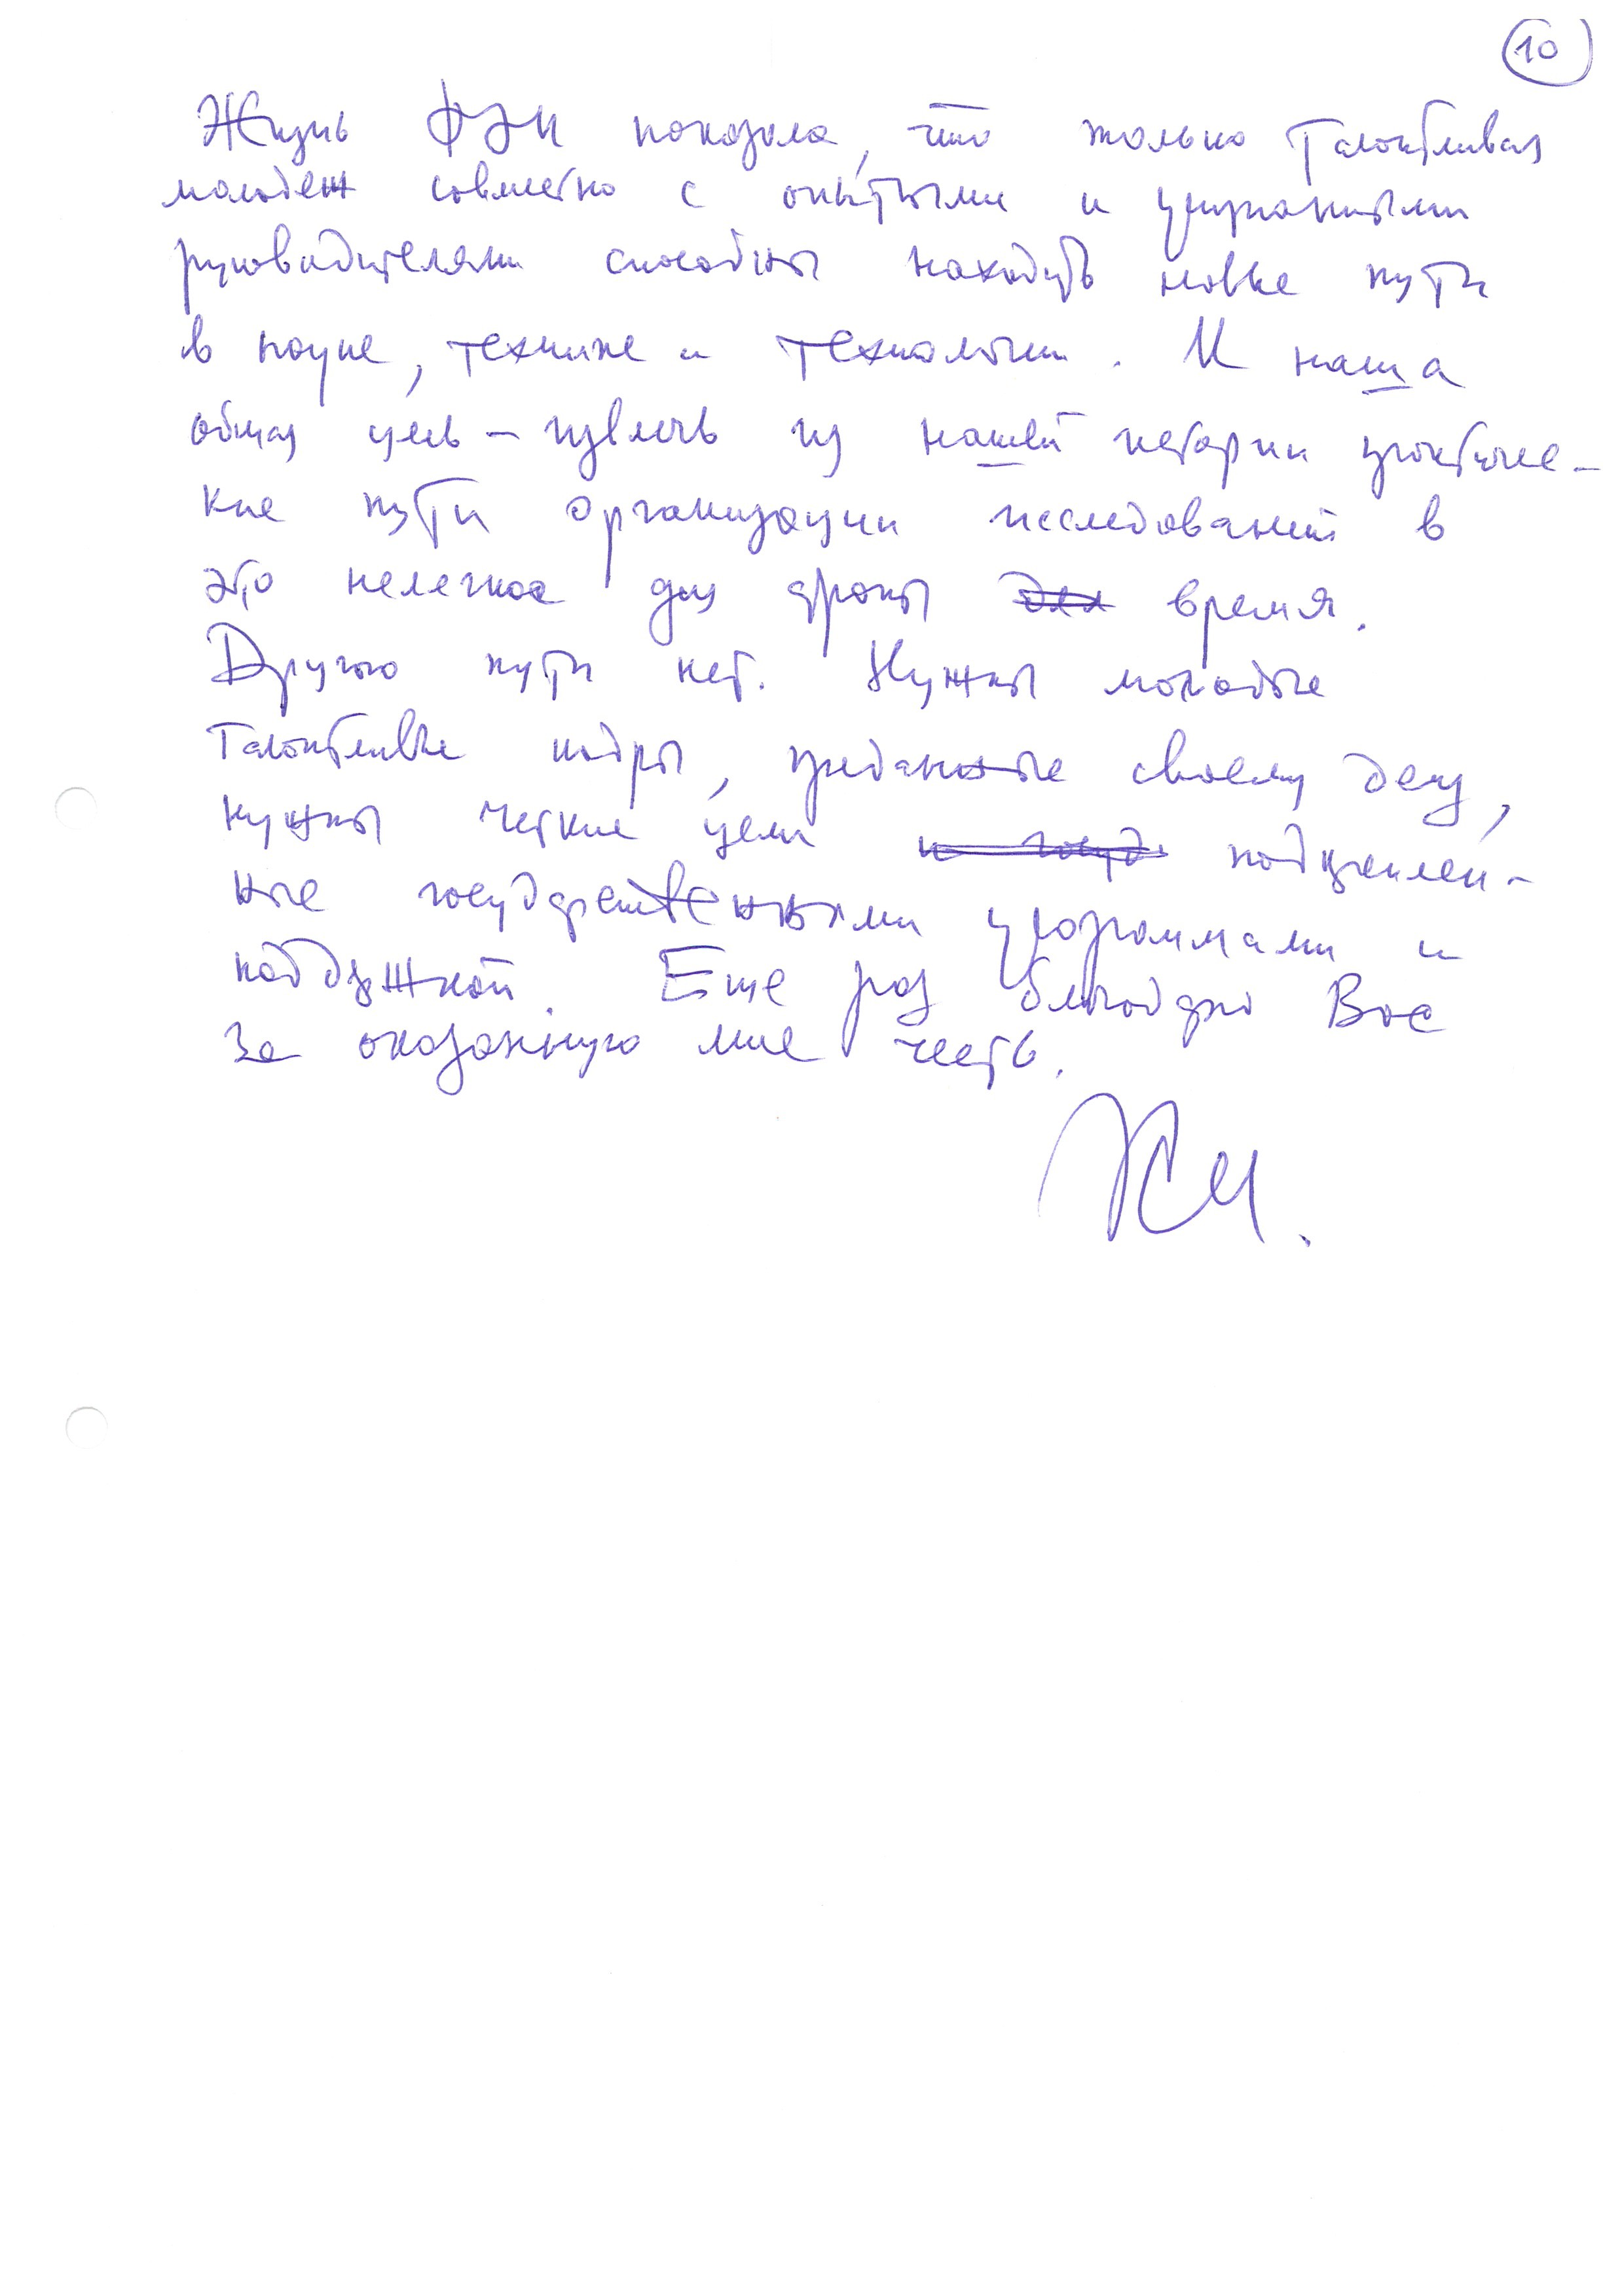 10
Жизнь ФЭИ показала, что только талантливая
молодеж совместно с опытными и признанными
руководителями способны находить новые пути
в науке, технике и технологии. И наша
общая цель – извлечь из нашей истории практиче-
кие пути организации исследований в
это нелегкое для страны для время.
Другого пути нет. Нужны молодые
талантливые кадры, преданные своему делу,
нужны четкие цели подкреплен-
ные государственными программами и
поддержкой. Еще раз благодарю Вас
за оказанную мне честь.